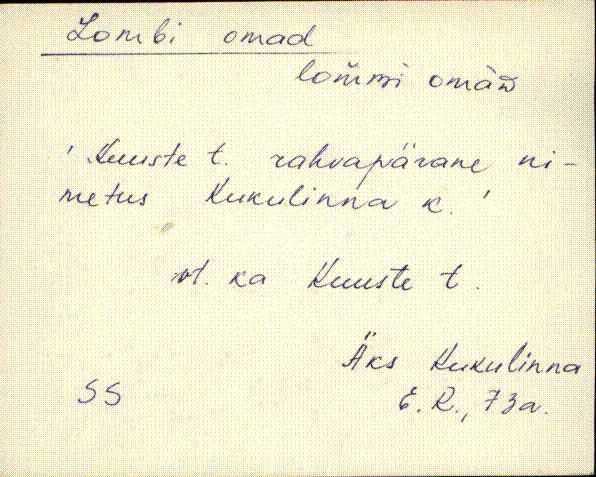 Lombi omad
lom̆mi omàd
' Kuuste t. rahvapärane ni-
metus Kukulinna k. '
vt. ka Kuuste t.
Äks Kukulinna
SS E. R., 73a.